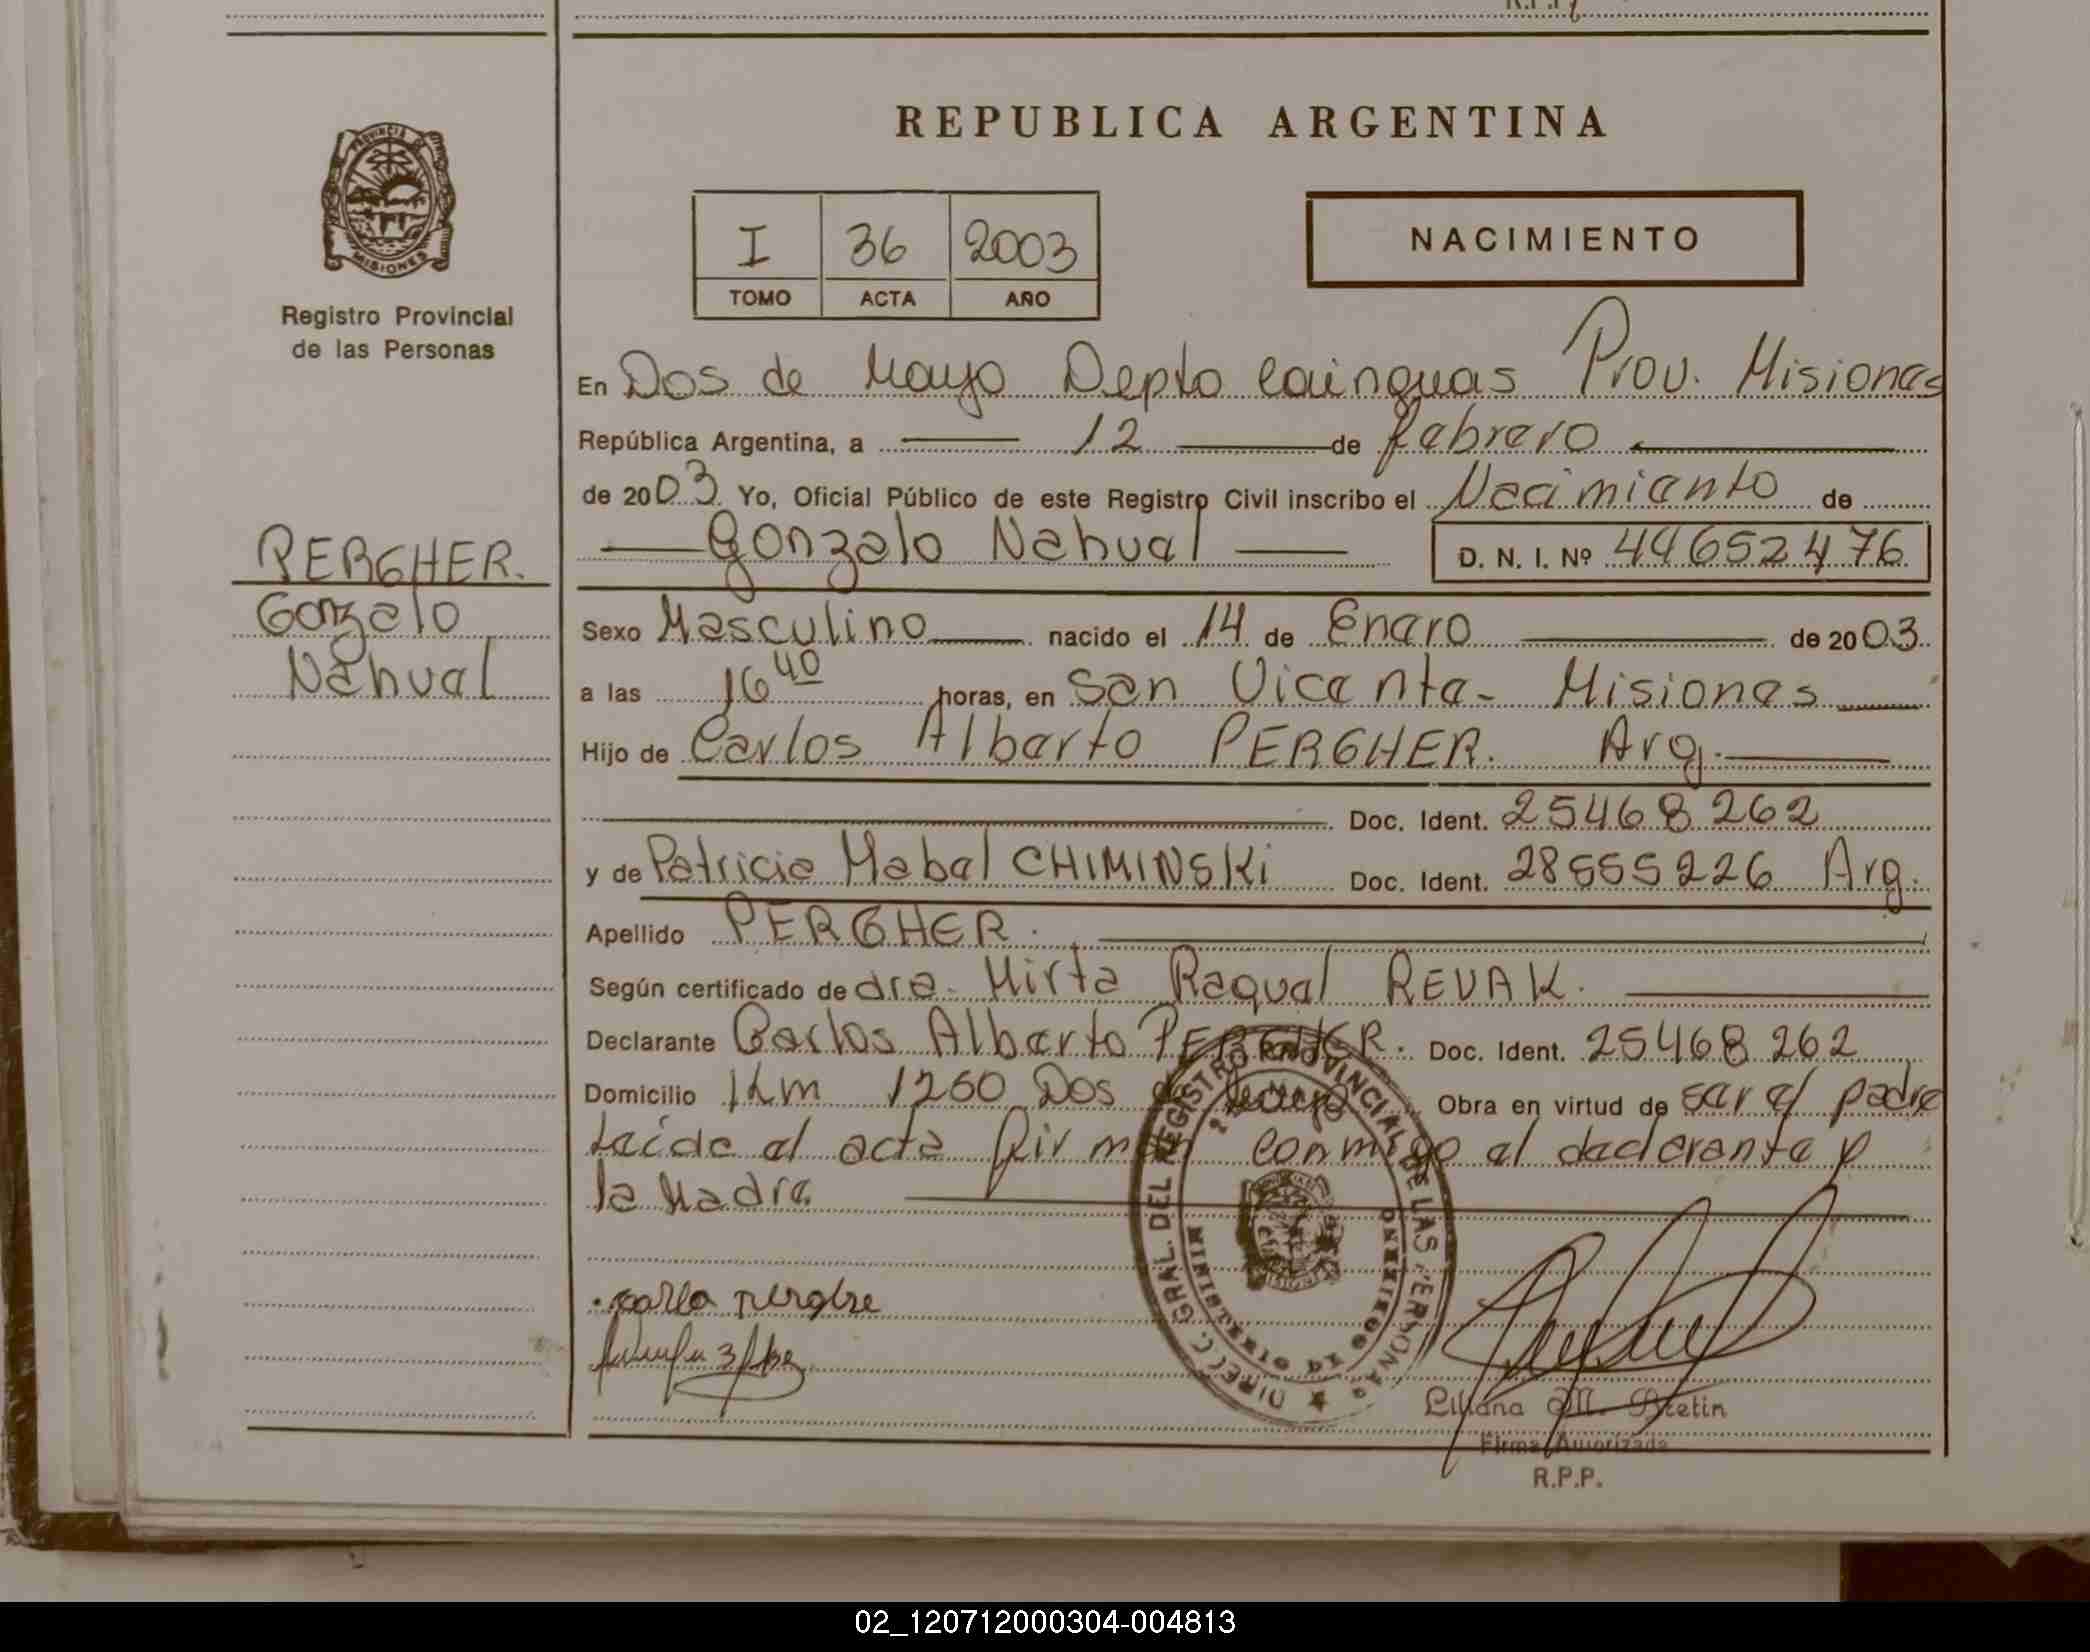 REPUBLICA ARGENTINA
PROVINCIA
MISIONES
Registro Provincial
de las Personas
I 36 2003
TOMO ACTA AÑO
NACIMIENTO
En Dos de Mayo Depto Cainguas Prov. Misiones
República Argentina, a 12 de febrero
de 2003. Yo, Oficial Público de este Registro Civil inscribo el Nacimiento de
Gonzalo Nahuel D. N. I. Nº 44652476
PERGHER.
Gonzalo
Nahuel
Sexo Masculino nacido el 14 de Enero de 2003.
a las 16 40 horas, en San Vicente - Misiones
Hijo de Carlos Alberto PERGHER. Arg.
Doc. Ident. 25468262
y de Patricia Mabel CHIMINSKi Doc. Ident. 28555226 Arg.
Apellido PERGHER.
Según certificado de dra. Mirta Raquel REVAK.
Declarante Carlos Alberto PERGHER. Doc. Ident. 25468262
Domicilio Km 1260 Dos de Mayo Obra en virtud de ser el padre
Leída el acta firman conmigo el declarante y
la Madre
DIRECC. GRAL. DEL REGISTRO PROVINCIAL DE LAS PERSONAS
MINISTERIO DE GOBIERNO
Liliana M.
Firma Autorizada
R.P.P.
02_120712000304-004813